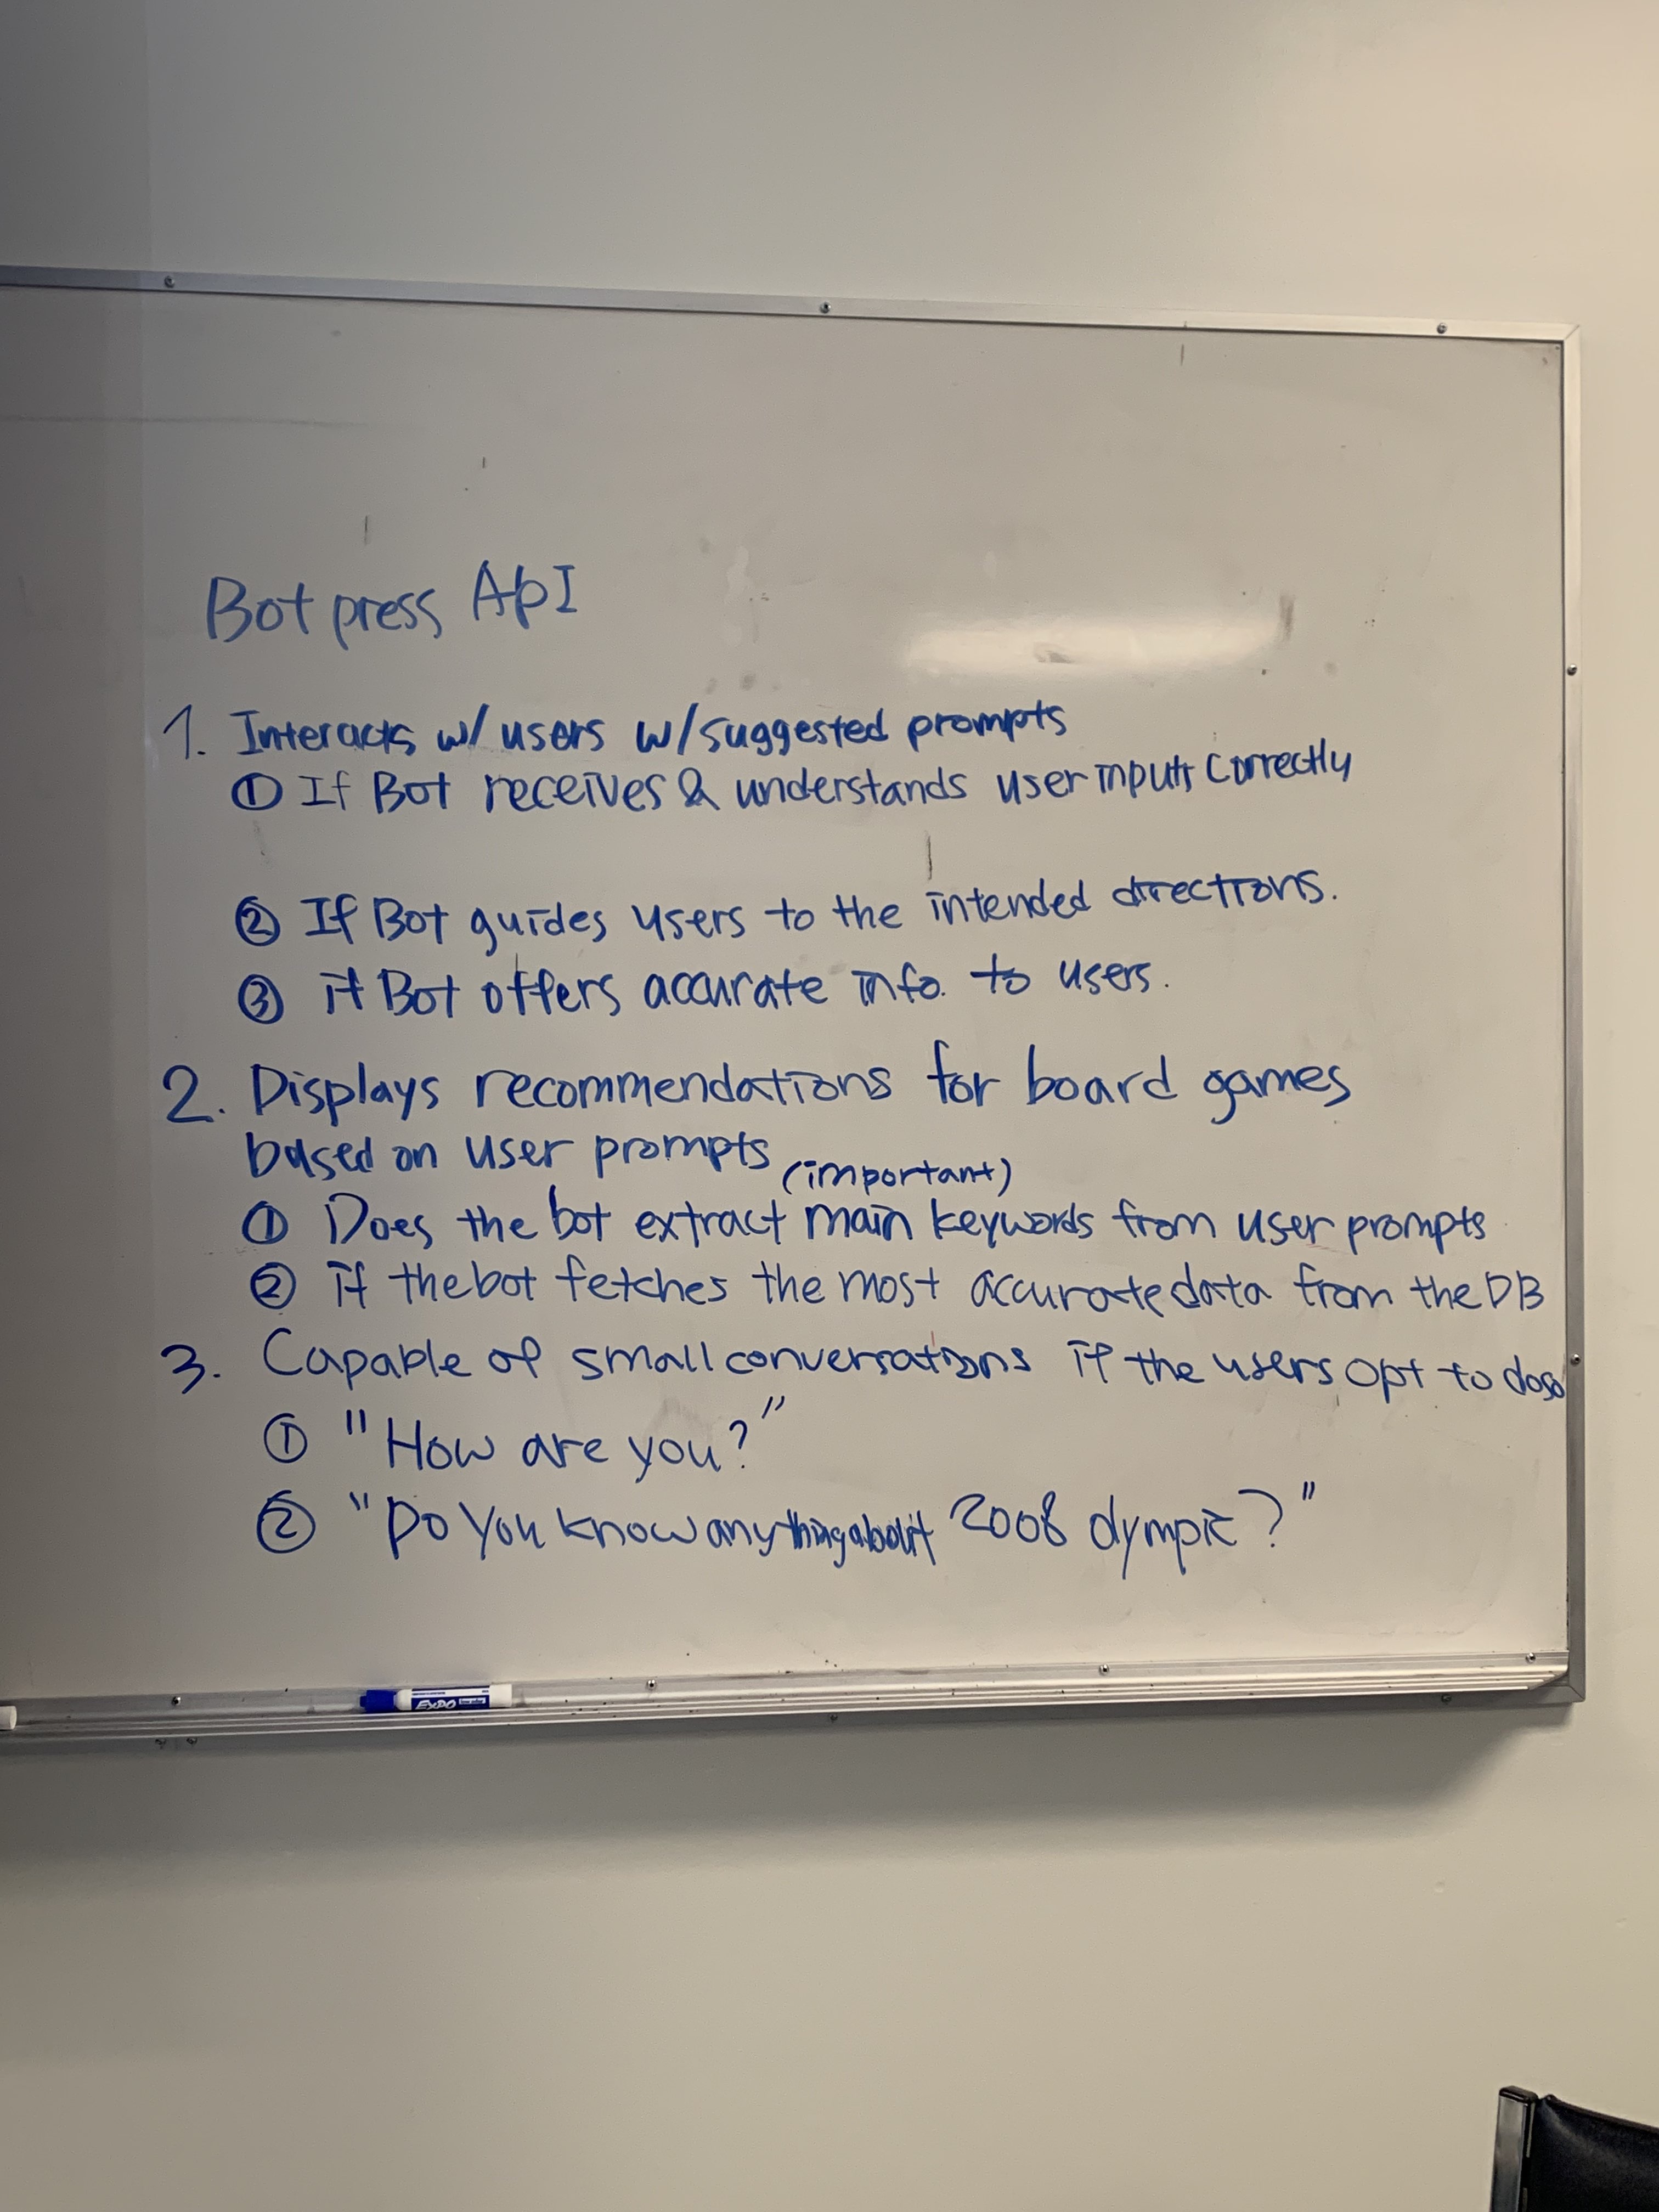 Bot press API
1. Interacts w/ users w/ suggested prompts
① If Bot receives & understands user inputs correctly
② If Bot guides users to the intended directions.
③ if Bot offers accurate info. to users.
2. Displays recommendations for board games
based on user prompts (important)
① Does the bot extract main keywords from user prompts
② if the bot fetches the most accurate data from the DB
3. Capable of small conversations if the users opt to do so
① "How are you?"
② "Do you know anything about 2008 olympic?"
EXPO